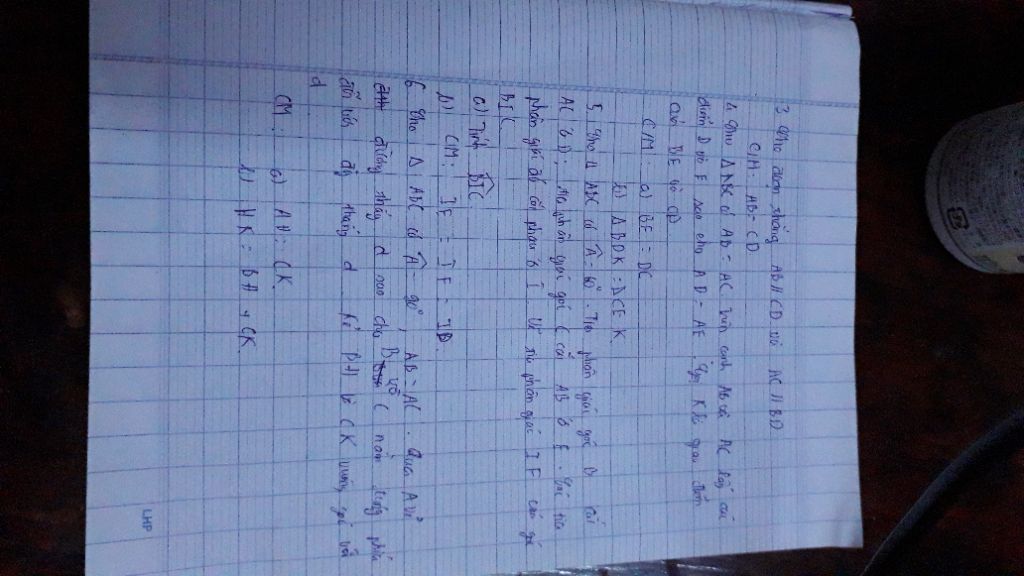 3 Cho đoạn thẳng AB // CD và AC // BD
C/M: AB = CD
4 Cho Δ ABC có AB = AC. Trên cạnh AB và AC lấy các
điểm D và E sao cho AD = AE. Gọi K là giao điểm
của BE và CD
C/M: a) BE = DC
b) Δ BDK = Δ CEK
5, Cho Δ ABC có Â = 60°. Tia phân giác góc B cắt
AC ở D; tia phân giác góc C cắt AB ở E. Các tia
phân giác đó cắt nhau ở I. Vẽ tia phân giác IF của góc
BIC
a) Tính BIC
b) C/M: IE = IF = ID
6 Cho Δ ABC có Â = 90°, AB = AC. Qua A vẽ
đường thẳng d sao cho B và C nằm cùng phía
đối với đg thẳng d. Kẻ BH và CK vuông góc với
d
CM: a) AH = CK
b) HK = BH + CK
LHP